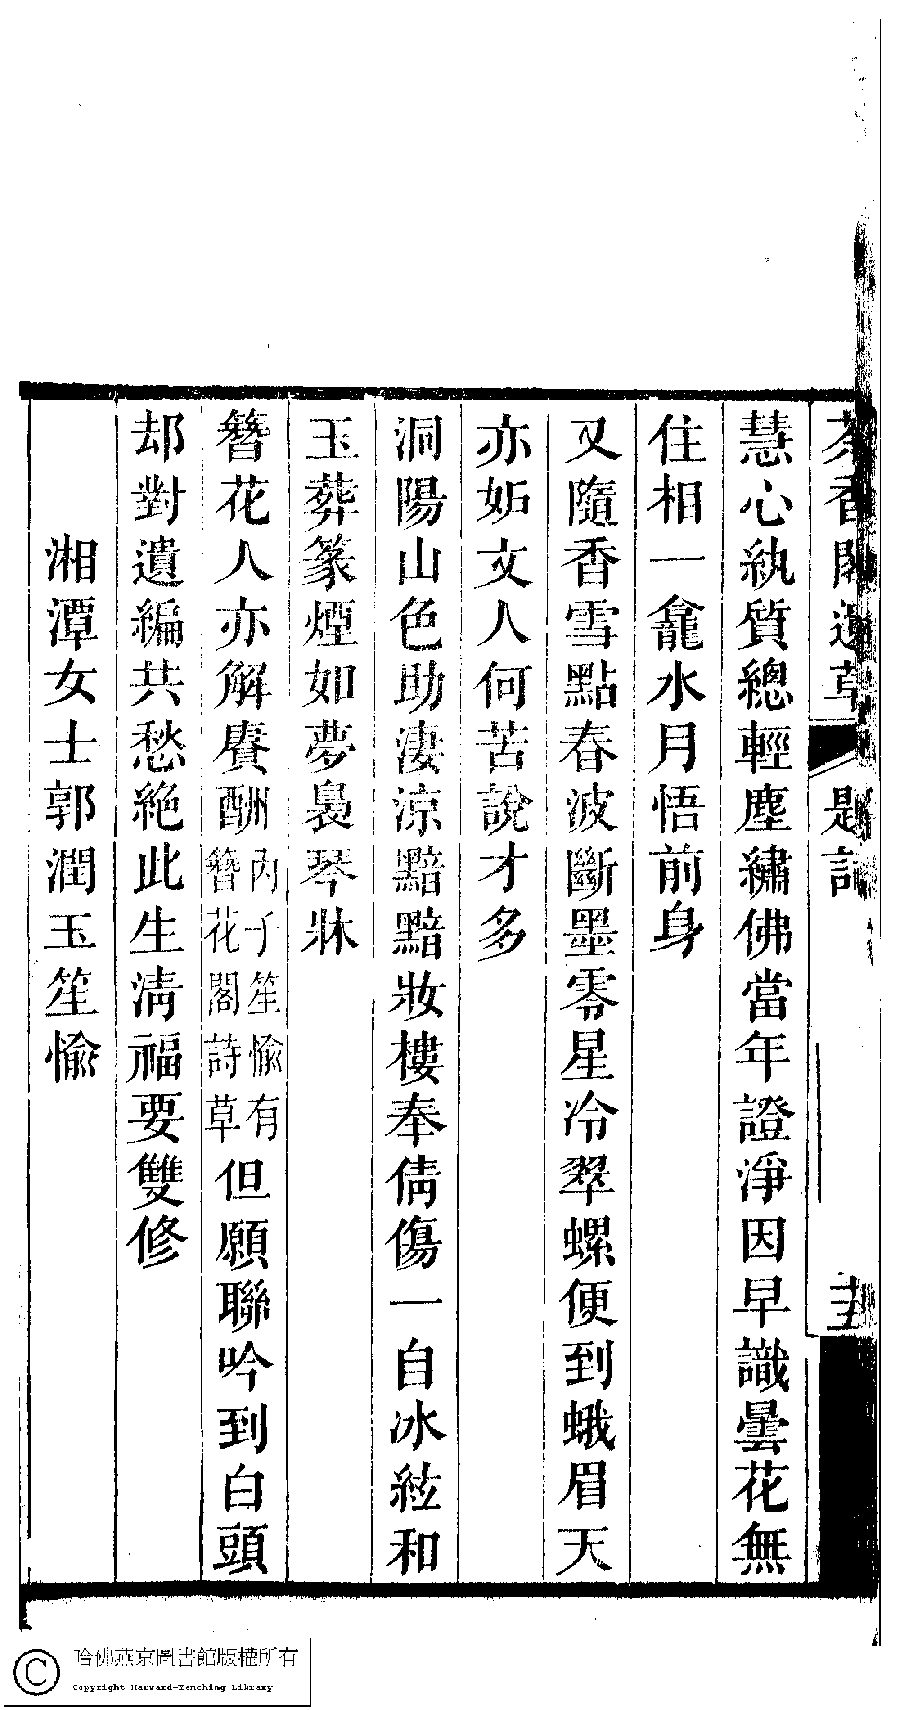 茶香閣遺草 題詞
慧心紈質總輕塵繡佛當年證淨因早識曇花無
住相一龕水月悟前身
又隨香雪點春波斷墨零星冷翠螺便到蛾眉天
亦妬文人何苦說才多
洞陽山色助淒涼黯黯妝樓奉倩傷一自冰絃和
玉葬篆煙如夢裊琴牀
簪花人亦解賡酬內子笙愉有簪花閣詩草但願聯吟到白頭
却對遺編共愁絕此生清福要雙修
湘潭女士郭潤玉笙愉
哈佛燕京圖書館版權所有
Copyright Harvard-Yenching Library